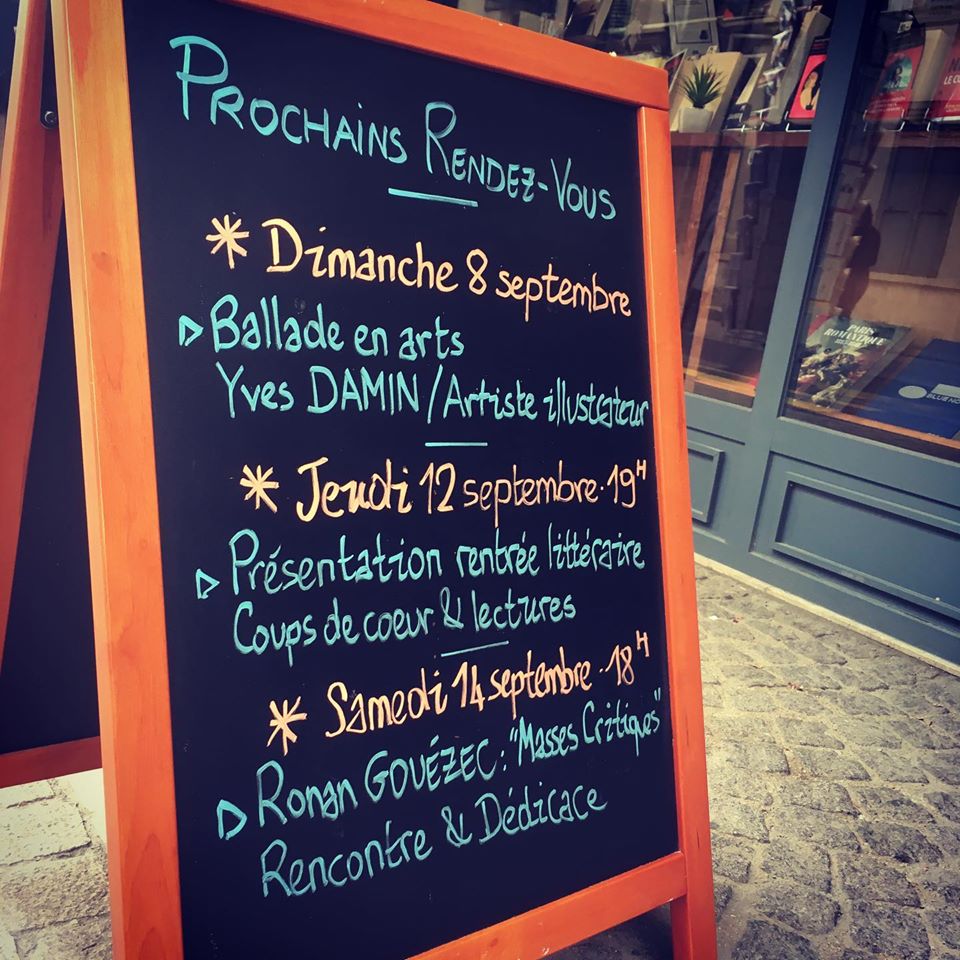 PROCHAINS RENDEZ-VOUS
* Dimanche 8 septembre
▷ Ballade en arts
Yves DAMIN / Artiste illustrateur
* Jeudi 12 septembre · 19H
▷ Présentation rentrée littéraire
Coups de coeur & lectures
* Samedi 14 septembre · 18H
▷ Ronan GOUÉZEC : "Masses Critiques"
Rencontre & Dédicace
PARIS
ROMANTIQUE